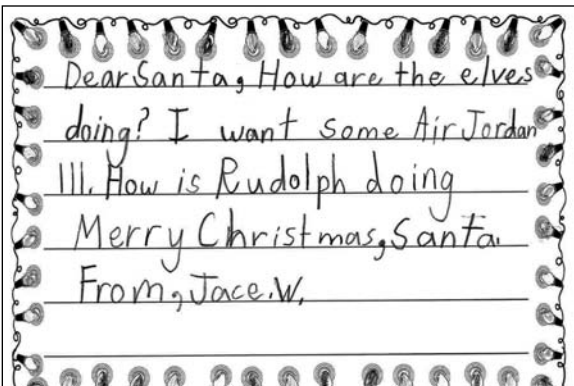 Dear Santa, How are the elves
doing? I want some Air Jordan
III. How is Rudolph doing
Merry Christmas, Santa.
From, Jace.W,